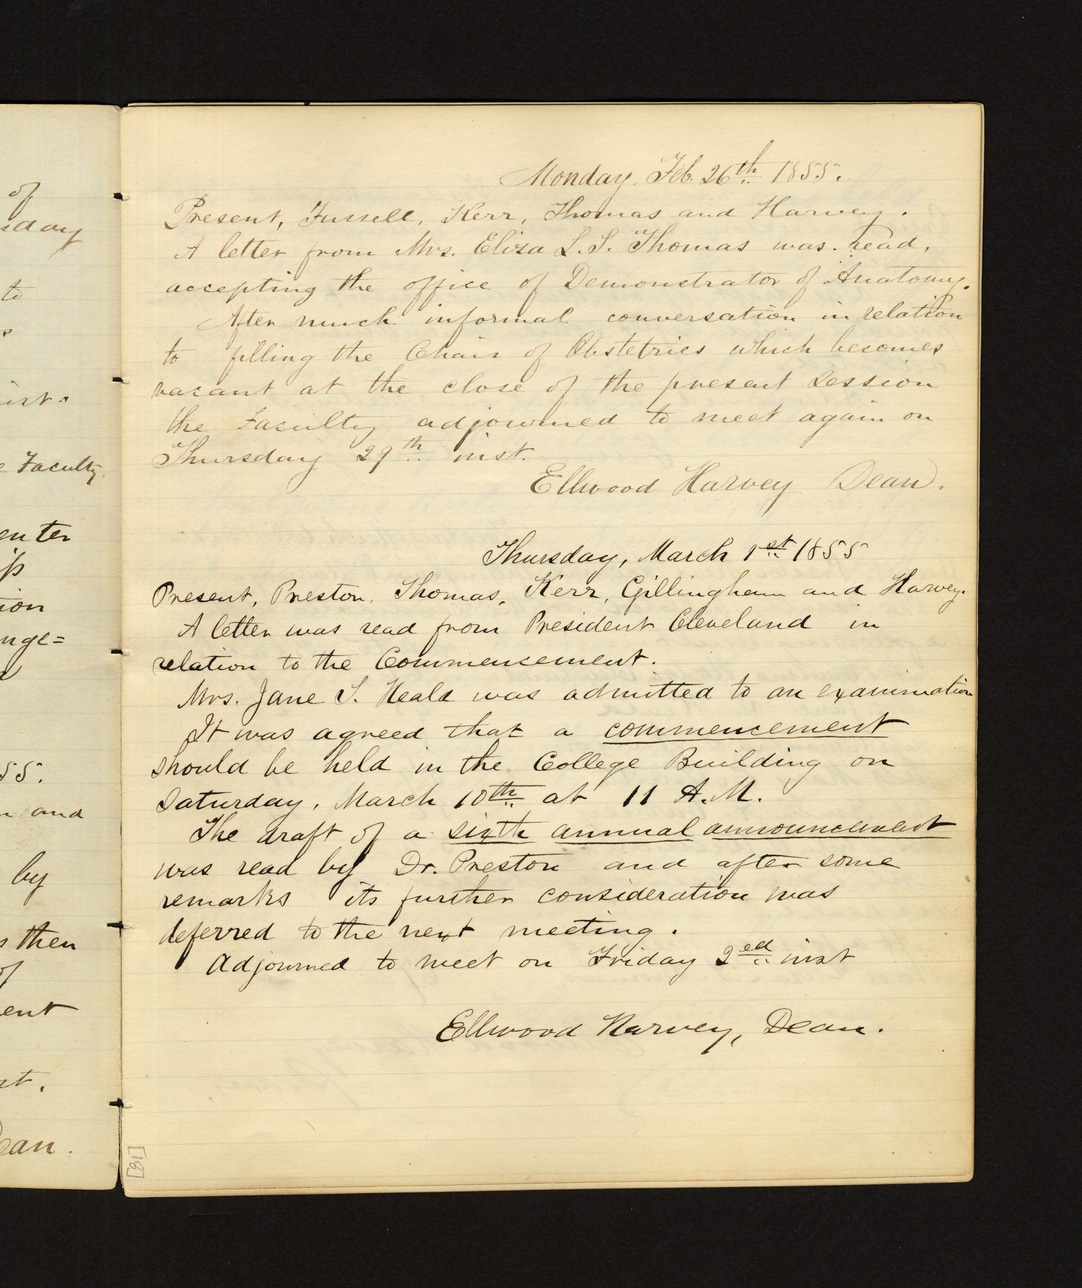 of
day
to
inst.
Faculty
enter
ip
tion
ange=
55.
and
by
then
of
ent
st.
Dean.
Monday, Feb. 26th 1855.
Present, Fussell, Kerr, Thomas and Harvey.
A letter from Mrs. Eliza L. S. Thomas was read,
accepting the office of Demonstrator of Anatomy.
After much informal conversation in relation
to filling the Chair of Obstetrics which becomes
vacant at the close of the present Session
the Faculty adjourned to meet again on
Thursday 29th inst.
Ellwood Harvey Dean.
Thursday, March 1st 1855
Present, Preston, Thomas, Kerr, Gillingham and Harvey.
A letter was read from President Cleveland in
relation to the Commencement.
Mrs. Jane S. Heald was admitted to an examination
It was agreed that a commencement
should be held in the College Building on
Saturday, March 10th at 11 A.M.
The draft of a sixth annual announcement
was read by Dr. Preston and after some
remarks its further consideration was
deferred to the next meeting.
Adjourned to meet on Friday 2ed inst
Ellwood Harvey, Dean.
[81]